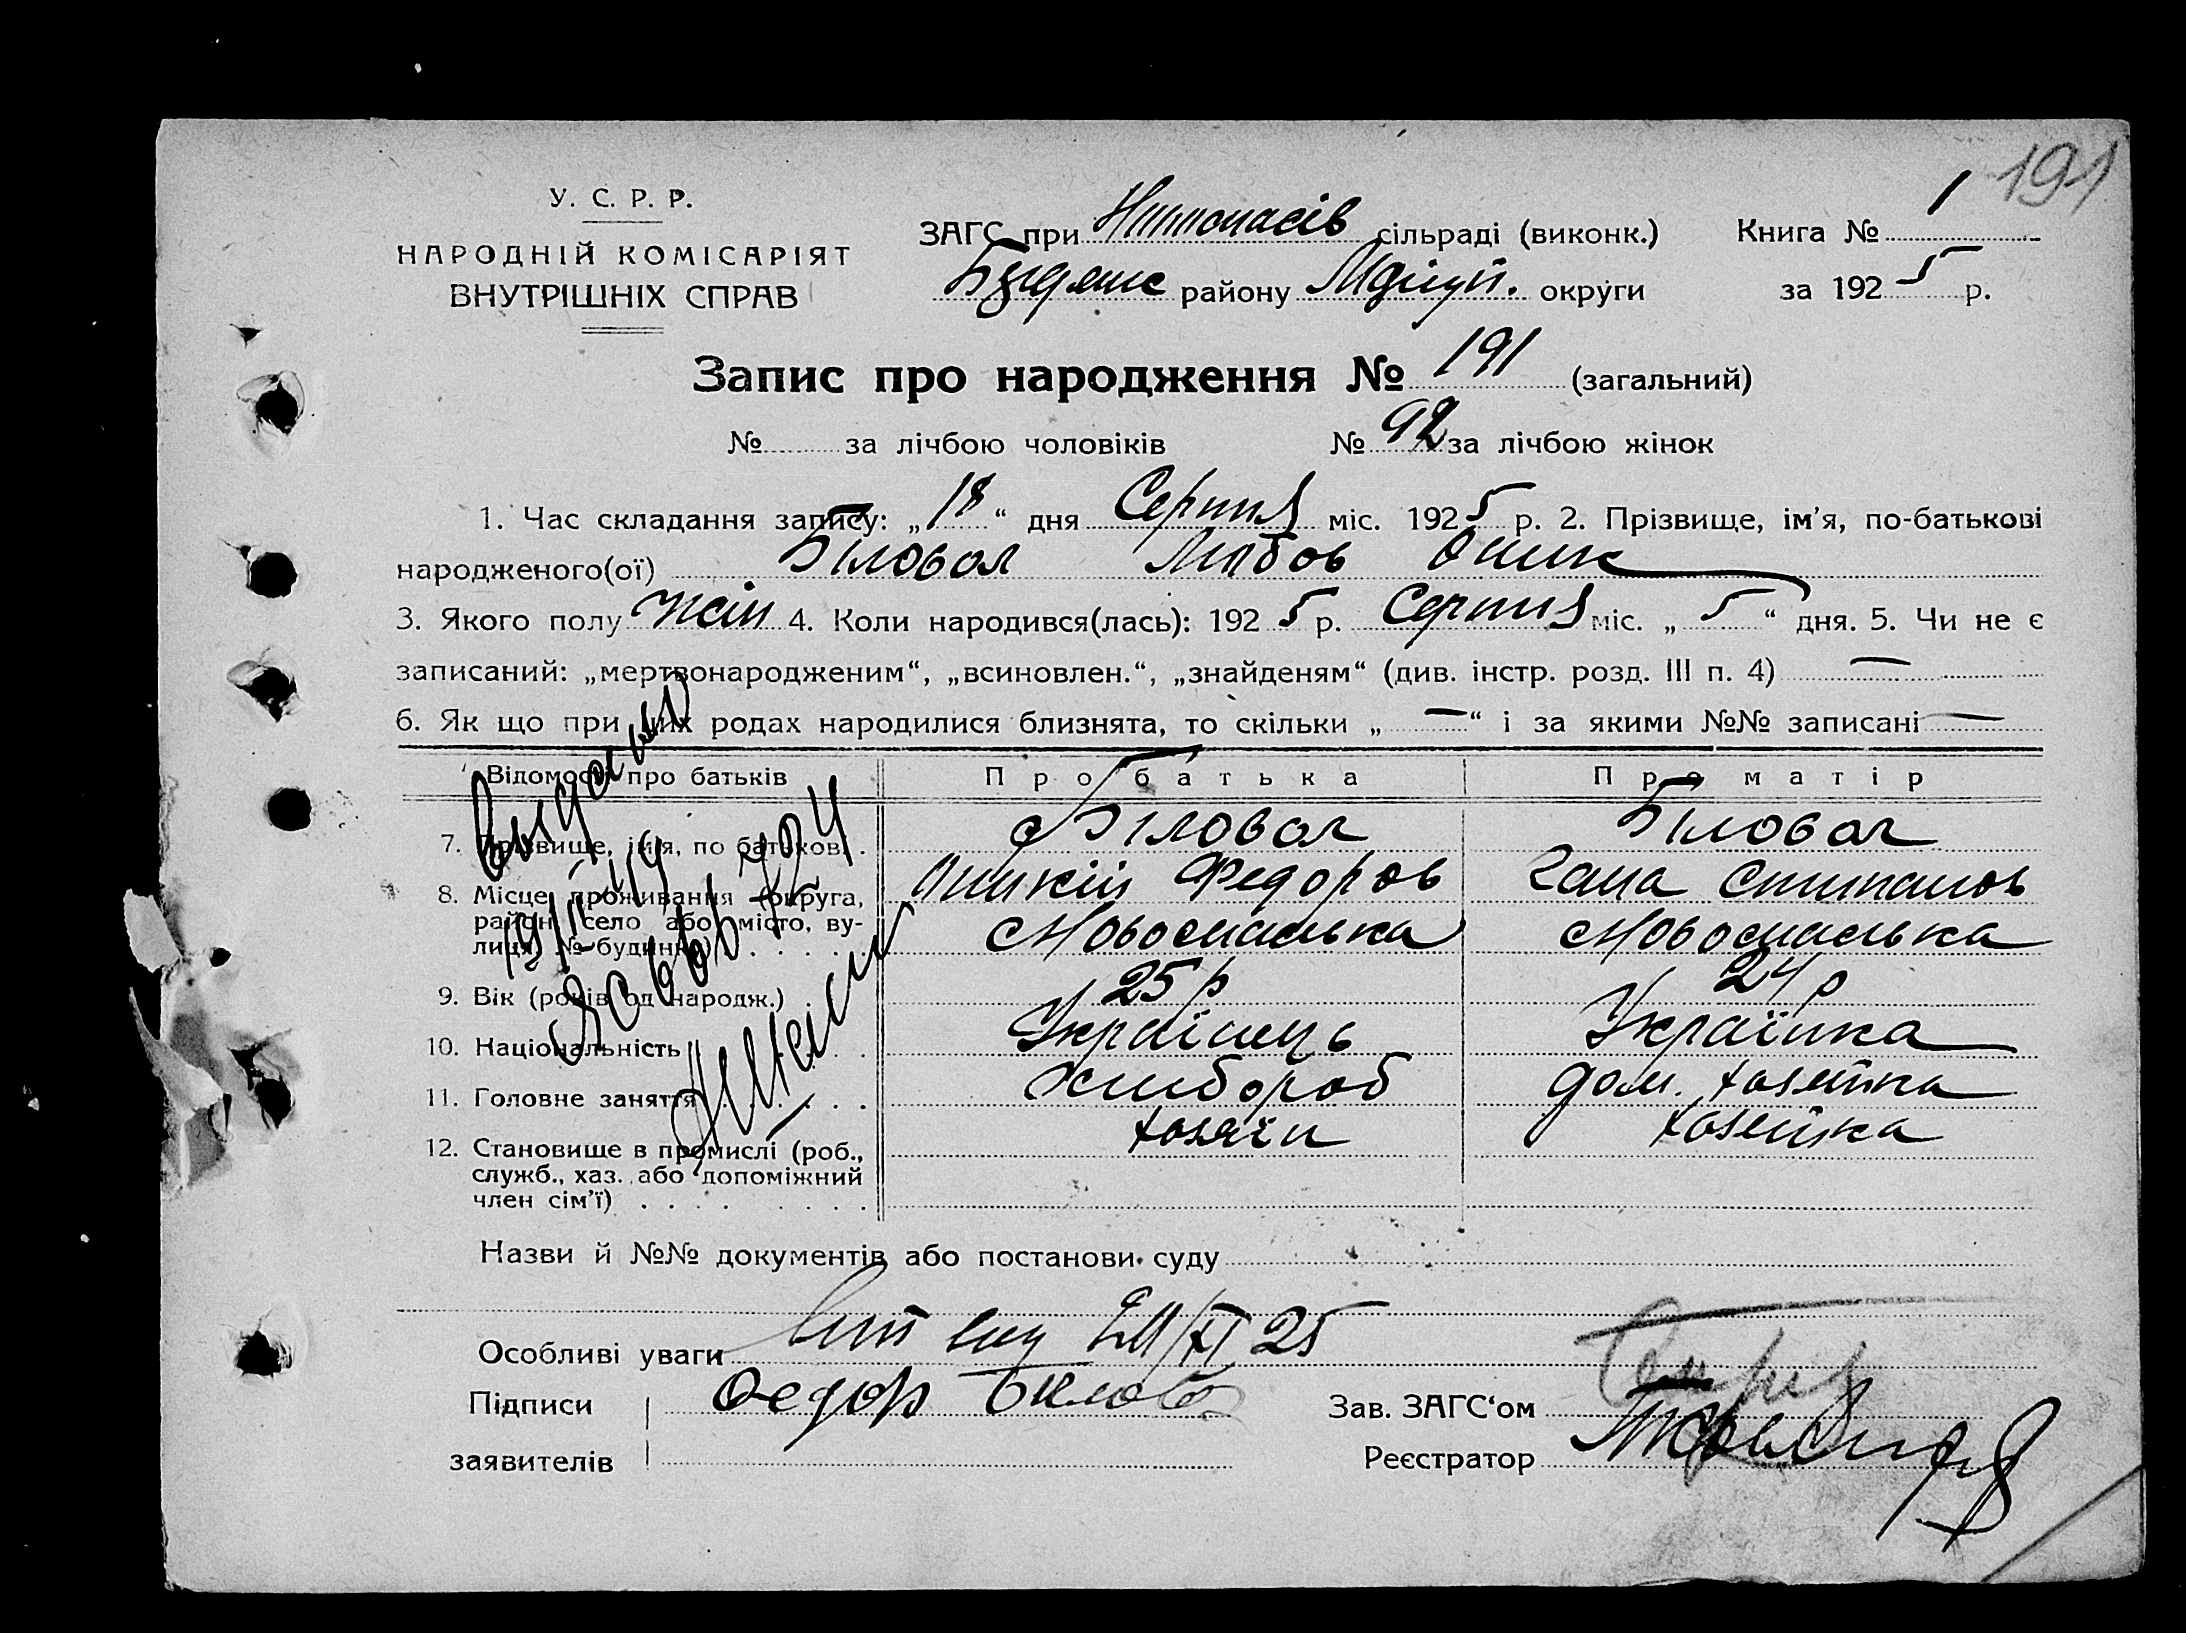 191
У. С. Р. Р.
НАРОДНІЙ КОМІСАРІЯТ
ВНУТРІШНІХ СПРАВ
ЗАГС при сільраді (виконк.) Книга № 1
району округи за 1925 р.
Запис про народження № 191 (загальний)
№ за лічбою чоловіків № 92 за лічбою жінок
1. Час складання запису: „18“ дня Серпня міс. 1925 р. 2. Прізвище, ім’я, по-батькові
народженого(ої) Біловол Любов
3. Якого полу жін 4. Коли народився(лась): 1925 р. Серпня міс. „5“ дня. 5. Чи не є
записаний: „мертвонародженим“, „всиновлен.“, „знайденям“ (див. інстр. розд. III п. 4) —
6. Як що при цих родах народилися близнята, то скільки „—“ і за якими №№ записані —
Відомості про батьків Про батька Про матір
7. Прізвище, ім’я, по батькові . Біловол Біловол
Федоров Гана Степанов
8. Місце проживання (округа,
район, село або місто, ву-
лиця, № будинка) Новоспаська Новоспаська
9. Вік (років од народж.) . 25 р 24 р
10. Національність Українець Українка
11. Головне заняття Хлібороб дом. хозяйка
12. Становище в промислі (роб.,
служб., хаз. або допоміжний
член сім’ї) хозяїн хозяйка
Назви й №№ документів або постанови суду
Особливі уваги 25
Підписи Федор Зав. ЗАГС‘ом
заявителів Реєстратор